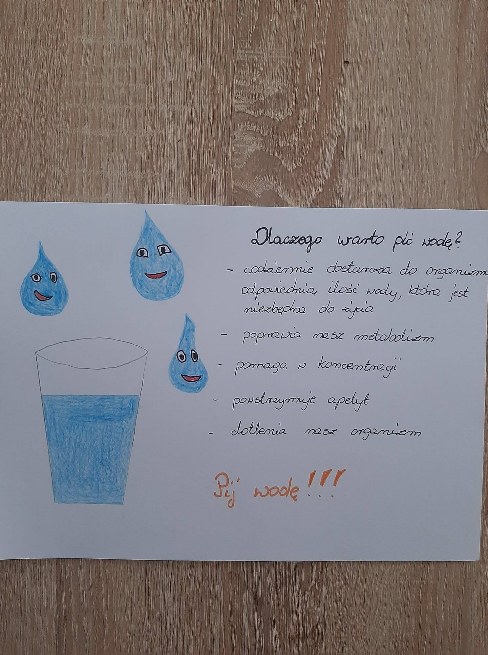 Dlaczego warto pić wodę?
- codziennie dostarcza do organizm
odpowiednią ilość wody, która jest
niezbędna do życia
- poprawia nasz metabolizm
- pomaga w koncentracji
- powstrzymuje apetyt
- dotlenia nasz organizm
Pij wodę!!!